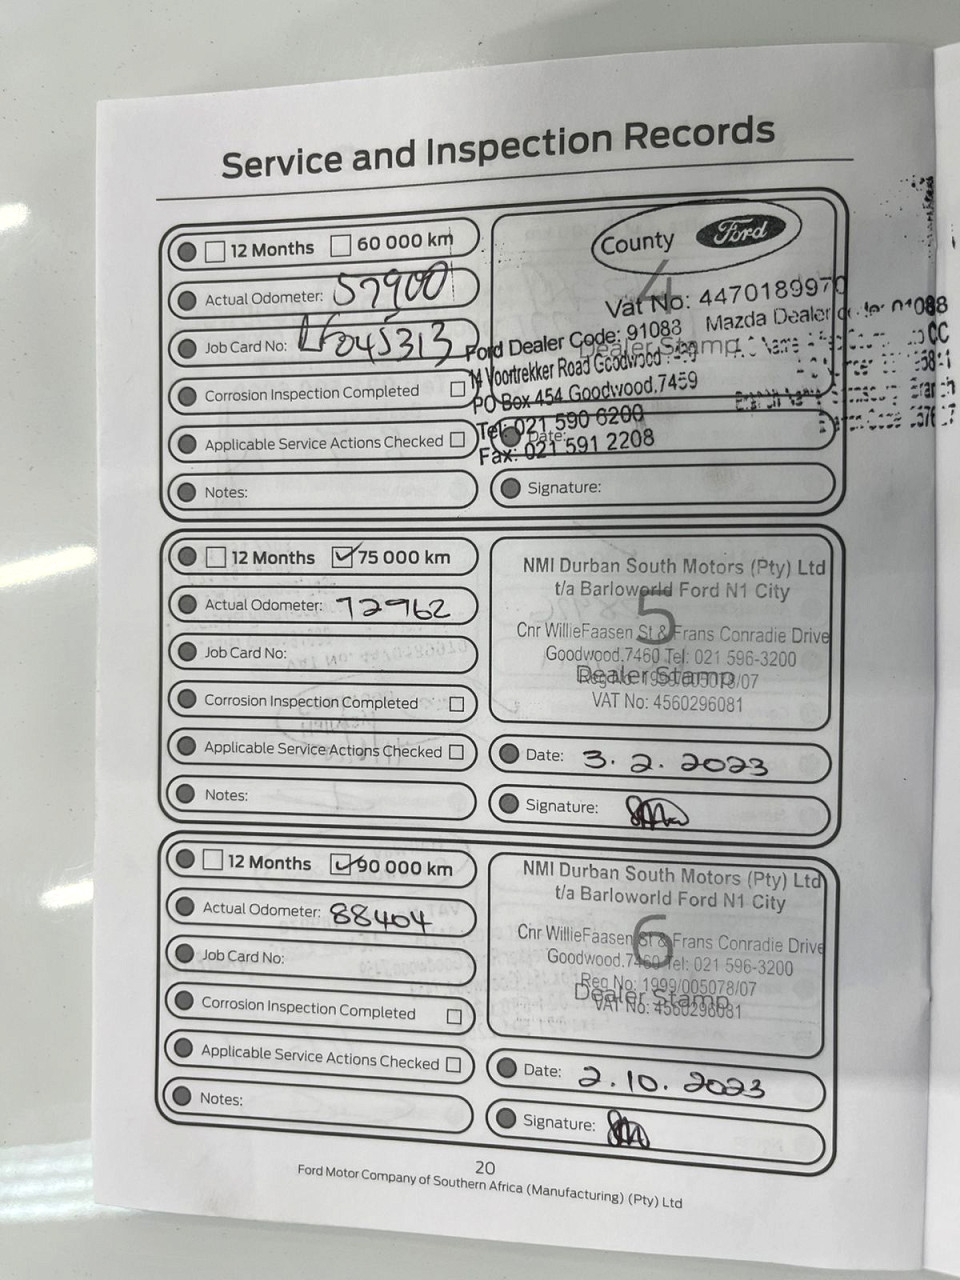 Service and Inspection Records
12 Months 60 000 km
Actual Odometer: 57900
Job Card No: LF045313
Corrosion Inspection Completed
Applicable Service Actions Checked
Notes:
County Ford
4
Vat No: 4470189970
Ford Dealer Code: 91083 Mazda Dealer
Dealer Stamp
Voortrekker Road Goodwood
PO Box 454 Goodwood,7459
Tel: 021 590 6200
Date:
Fax: 021 591 2208
Signature:
12 Months 75 000 km
Actual Odometer: 72962
Job Card No:
Corrosion Inspection Completed
Applicable Service Actions Checked
Notes:
NMI Durban South Motors (Pty) Ltd
t/a Barloworld Ford N1 City
5
Cnr WillieFaasen St & Frans Conradie Drive
Goodwood.7460 Tel: 021 596-3200
Reg No: 1999/005078/07
Dealer Stamp
VAT No: 4560296081
Date: 3.2.2023
Signature:
12 Months 90 000 km
Actual Odometer: 88404
Job Card No:
Corrosion Inspection Completed
Applicable Service Actions Checked
Notes:
NMI Durban South Motors (Pty) Ltd
t/a Barloworld Ford N1 City
6
Cnr WillieFaasen St & Frans Conradie Drive
Goodwood.7460 Tel: 021 596-3200
Reg No: 1999/005078/07
Dealer Stamp
VAT No: 4560296081
Date: 2.10.2023
Signature:
20
Ford Motor Company of Southern Africa (Manufacturing) (Pty) Ltd